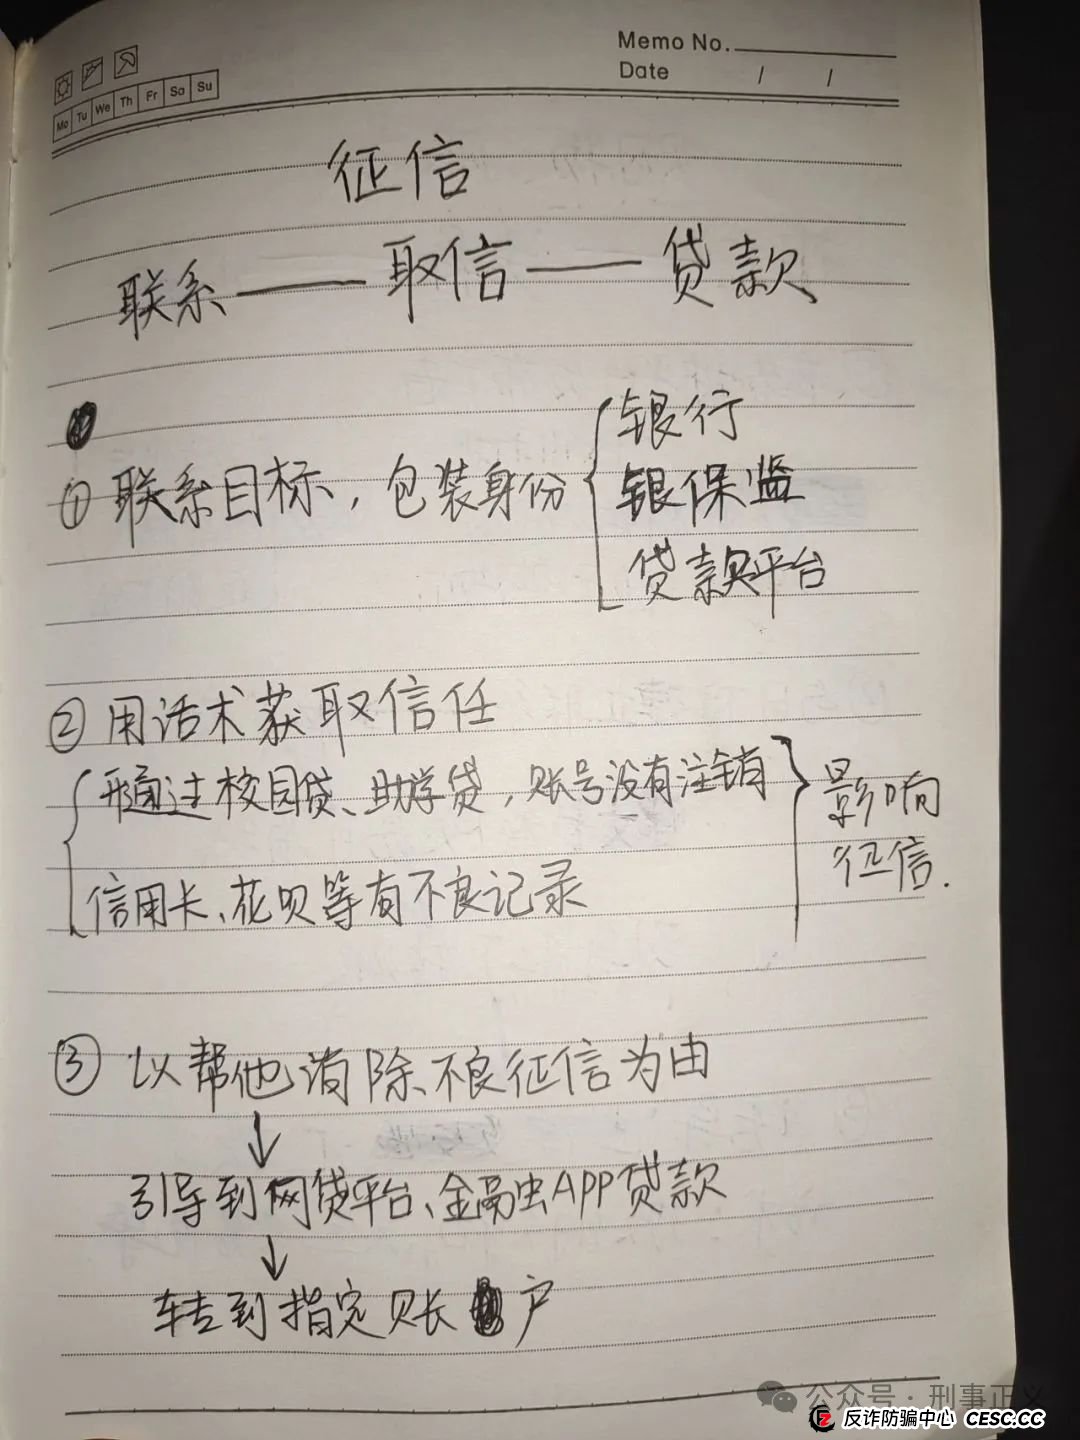 Memo No.
Date / /
Mo Tu We Th Fr Sa Su
征信
联系——取信——贷款
①联系目标，包装身份
银行
银保监
贷款平台
②用话术获取信任
开通过校园贷、助学贷，账号没有注销
信用卡、花呗等有不良记录
影响
征信.
③以帮他消除不良征信为由
↓
引导到网贷平台、金融APP贷款
↓
转到指定账户
公众号·刑事正义
反诈防骗中心 CESC.CC